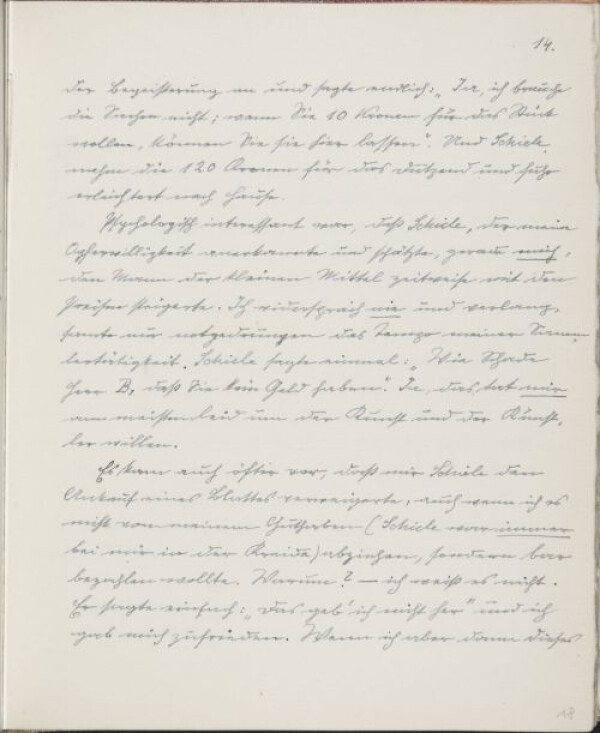 14.
der Begeisterung an und sagte endlich: „Ja, ich brauche
die Sachen nicht; wenn Sie 10 Kronen für das Stück
wollen, können Sie sie hier lassen". Und Schiele
nahm die 120 Kronen für das Dutzend und fuhr
erleichtert nach Hause.
Psychologisch interessant war, daß Schiele, der meine
Opferwilligkeit anerkannte und schätzte, gerade mich,
den Mann der kleinen Mittel zeitweise mit den
Preisen steigerte. Ich widersprach nie und verlang-
samte nur notgedrungen das Tempo meiner Samm-
lertätigkeit. Schiele sagte einmal: „Wie schade
Herr B, daß Sie kein Geld haben". Ja, das tat mir
am meisten leid um der Kunst und der Künst-
ler willen.
Es kam auch öfter vor, daß mir Schiele den
Ankauf eines Blattes verweigerte, auch wenn ich es
nicht von meinem Guthaben (Schiele war immer
bei mir in der Kreide) abziehen, sondern bar
bezahlen wollte. Warum? — ich weiß es nicht.
Er sagte einfach: „das geb' ich nicht her" und ich
gab mich zufrieden. Wenn ich aber dann dieses
18